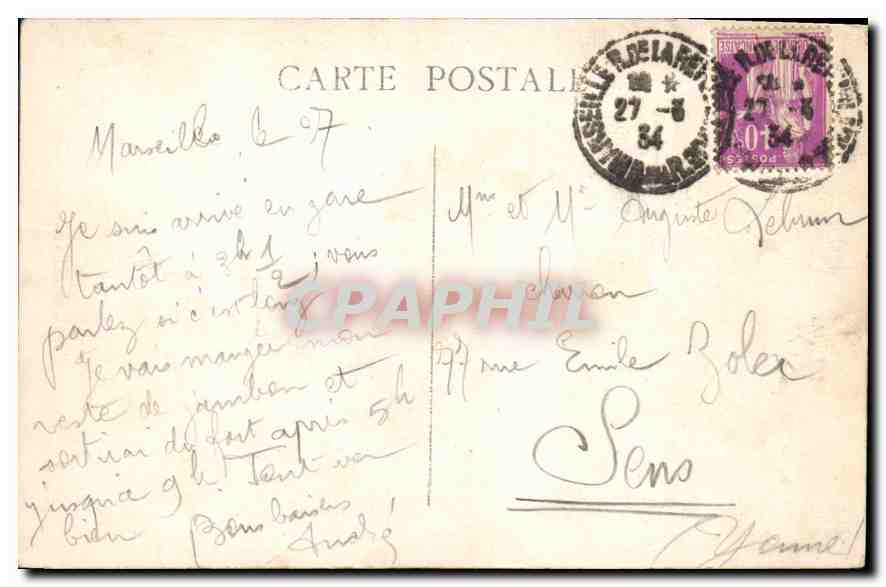 CARTE POSTALE
MARSEILLE R. DE LA RE
27 -3
34
Marseille, le 27
Je suis arrivé en gare
tantôt à 3h 1/2, vous
parlez si c'est long
Je vais manger mon
reste de jambon et
sortirai du fort après 5h
jusqu'à 9h. Tout va
bien Bons baisers
André
Mme et Mr Auguste Lebrun
charron
77 rue Emile Zola
Sens
Yonne
CPAPHIL